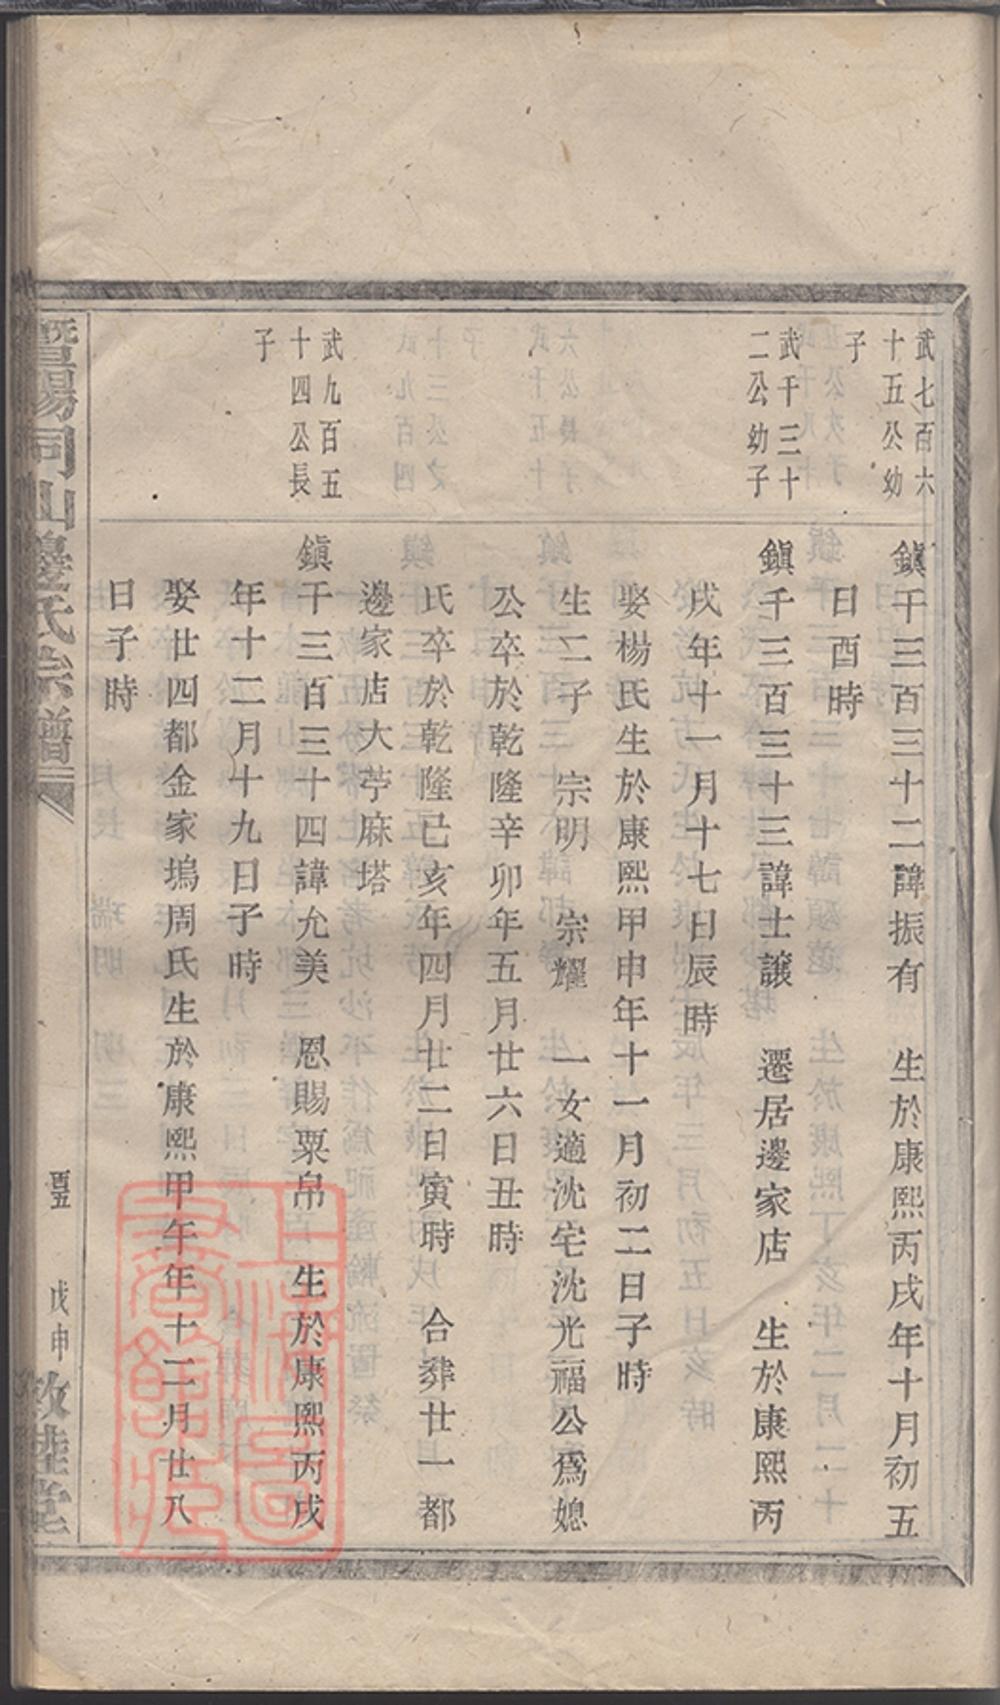 武七百六
十五公幼
子
鎮千三百三十二諱振有 生於康熙丙戌年十月初五
日酉時
武千三十
二公幼子
鎮千三百三十三諱士讓 遷居邊家店 生於康熙丙
戌年十一月十七日辰時
娶楊氏生於康熙甲申年十一月初二日子時
生二子 宗明 宗耀 一女適沈宅沈光福公爲媳
公卒於乾隆辛卯年五月廿六日丑時
氏卒於乾隆己亥年四月廿二日寅時 合葬廿一都
邊家店大苧麻塔
武九百五
十四公長
子
鎮千三百三十四諱允美 恩賜粟帛 生於康熙丙戌
年十二月十九日子時
娶廿四都金家塢周氏生於康熙甲午年十二月廿八
日子時
暨陽同山邊氏宗譜
戊申
敦睦堂
上海圖
書館藏